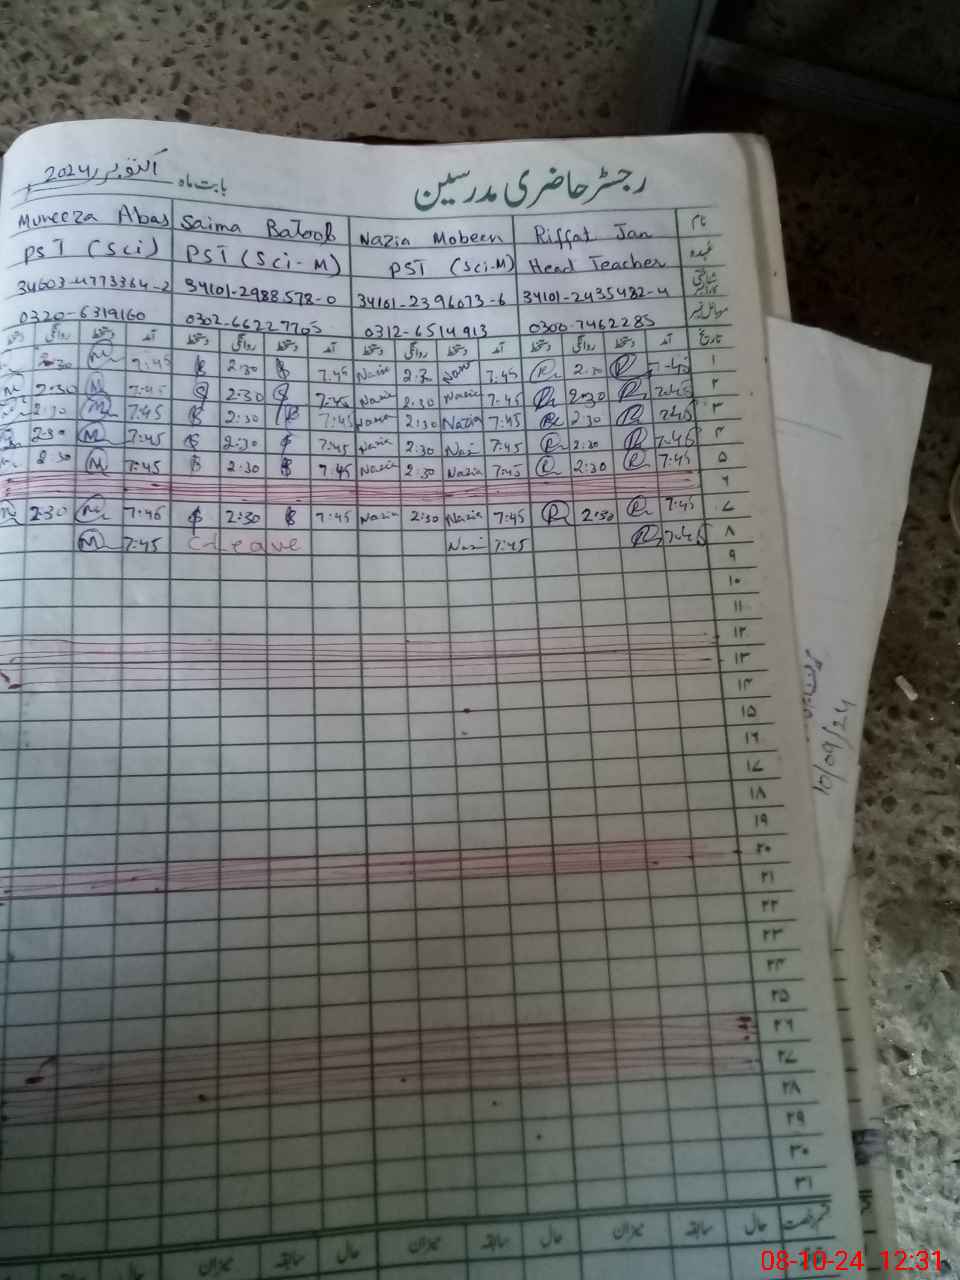 رجسٹر حاضری مدرسین
بابت ماہ اکتوبر 2024
نام Riffat Jan Nazia Mobeen Saima Batool Muneeza Abas
عہدہ Head Teacher PST (Sci-M) PST (Sci-M) PST (Sci)
34101-2435482-4 34101-2396073-6 34101-2988578-0 34603-4773364-2
موبائل نمبر 0300-7462285 0312-6514913 0302-66227705 0320-6319160
تاریخ آمد دستخط روانگی دستخط آمد دستخط روانگی دستخط آمد دستخط روانگی دستخط آمد دستخط روانگی
۱ 7-45 R 2:30 R 7:45 Nazia 2:30 Nazia 7:45 2:30 7:45 M 2:30
۲ 7:45 R 2:30 R 7:45 Nazia 2:30 Nazia 7:45 2:30 7:45 M 2:30
۳ 7:45 R 2:30 R 7:45 Nazia 2:30 Nazia 7:45 2:30 7:45 M 2:30
۴ 7:45 R 2:30 R 7:45 Nazi 2:30 Nazia 7:45 2:30 7:45 M 2:30
۵ 7:45 R 2:30 R 7:45 Nazia 2:30 Nazia 7:45 2:30 7:45 M 2:30
۶
۷ 7:45 R 2:30 R 7:45 Nazia 2:30 Nazia 7:45 2:30 7:45 M 2:30
۸ 7:45 R 7:45 Nazi C Leave 7:45 M
۹
۱۰
۱۱
۱۲
۱۳
۱۴
۱۵
۱۶
۱۷
۱۸
۱۹
۲۰
۲۱
۲۲
۲۳
۲۴
۲۵
۲۶
۲۷
۲۸
۲۹
۳۰
۳۱
رخصت حال سابقہ میزان حال سابقہ میزان حال سابقہ میزان
10/09/24
08-10-24 12:31